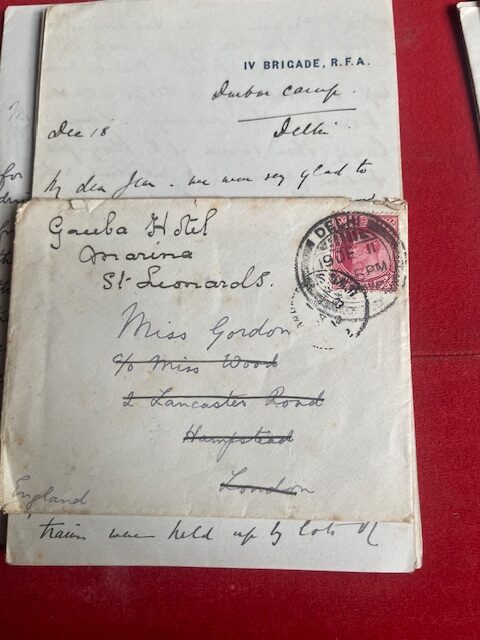 IV BRIGADE, R.F.A.
Durbar Camp.
Dec 18
Delhi.
My dear Jean - we were very glad to
for
Gauba Hotel
Marina
St Leonards.
DELHI
19 DE 11
5 PM
Miss Gordon
c/o Miss Wood
2 Lancaster Road
Hampstead
London
England
trains were held up by lots of